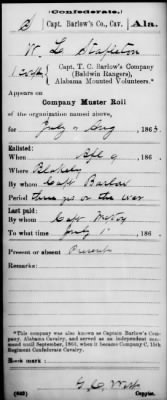 (Confederate.)
S Capt. Barlow's Co., Cav., Ala.
W. L. Stapleton
Capt. T. C. Barlow's Company
(Baldwin Rangers),
Alabama Mounted Volunteers.*
Appears on
Company Muster Roll
of the organization named above,
for July & Aug, 1863.
Enlisted:
When 9, 186
Where Blakely
By whom Capt Barlow
Period three yrs or the war
Last paid:
By whom Capt McVoy
To what time July 1, 186
Present or absent Present
Remarks:
*This company was also known as Captain Barlow's Company, Alabama Cavalry, and served as an independent command until September, 1864, when it became Company C, 15th Regiment Confederate Cavalry.
Book mark:
(642)
Copyist.